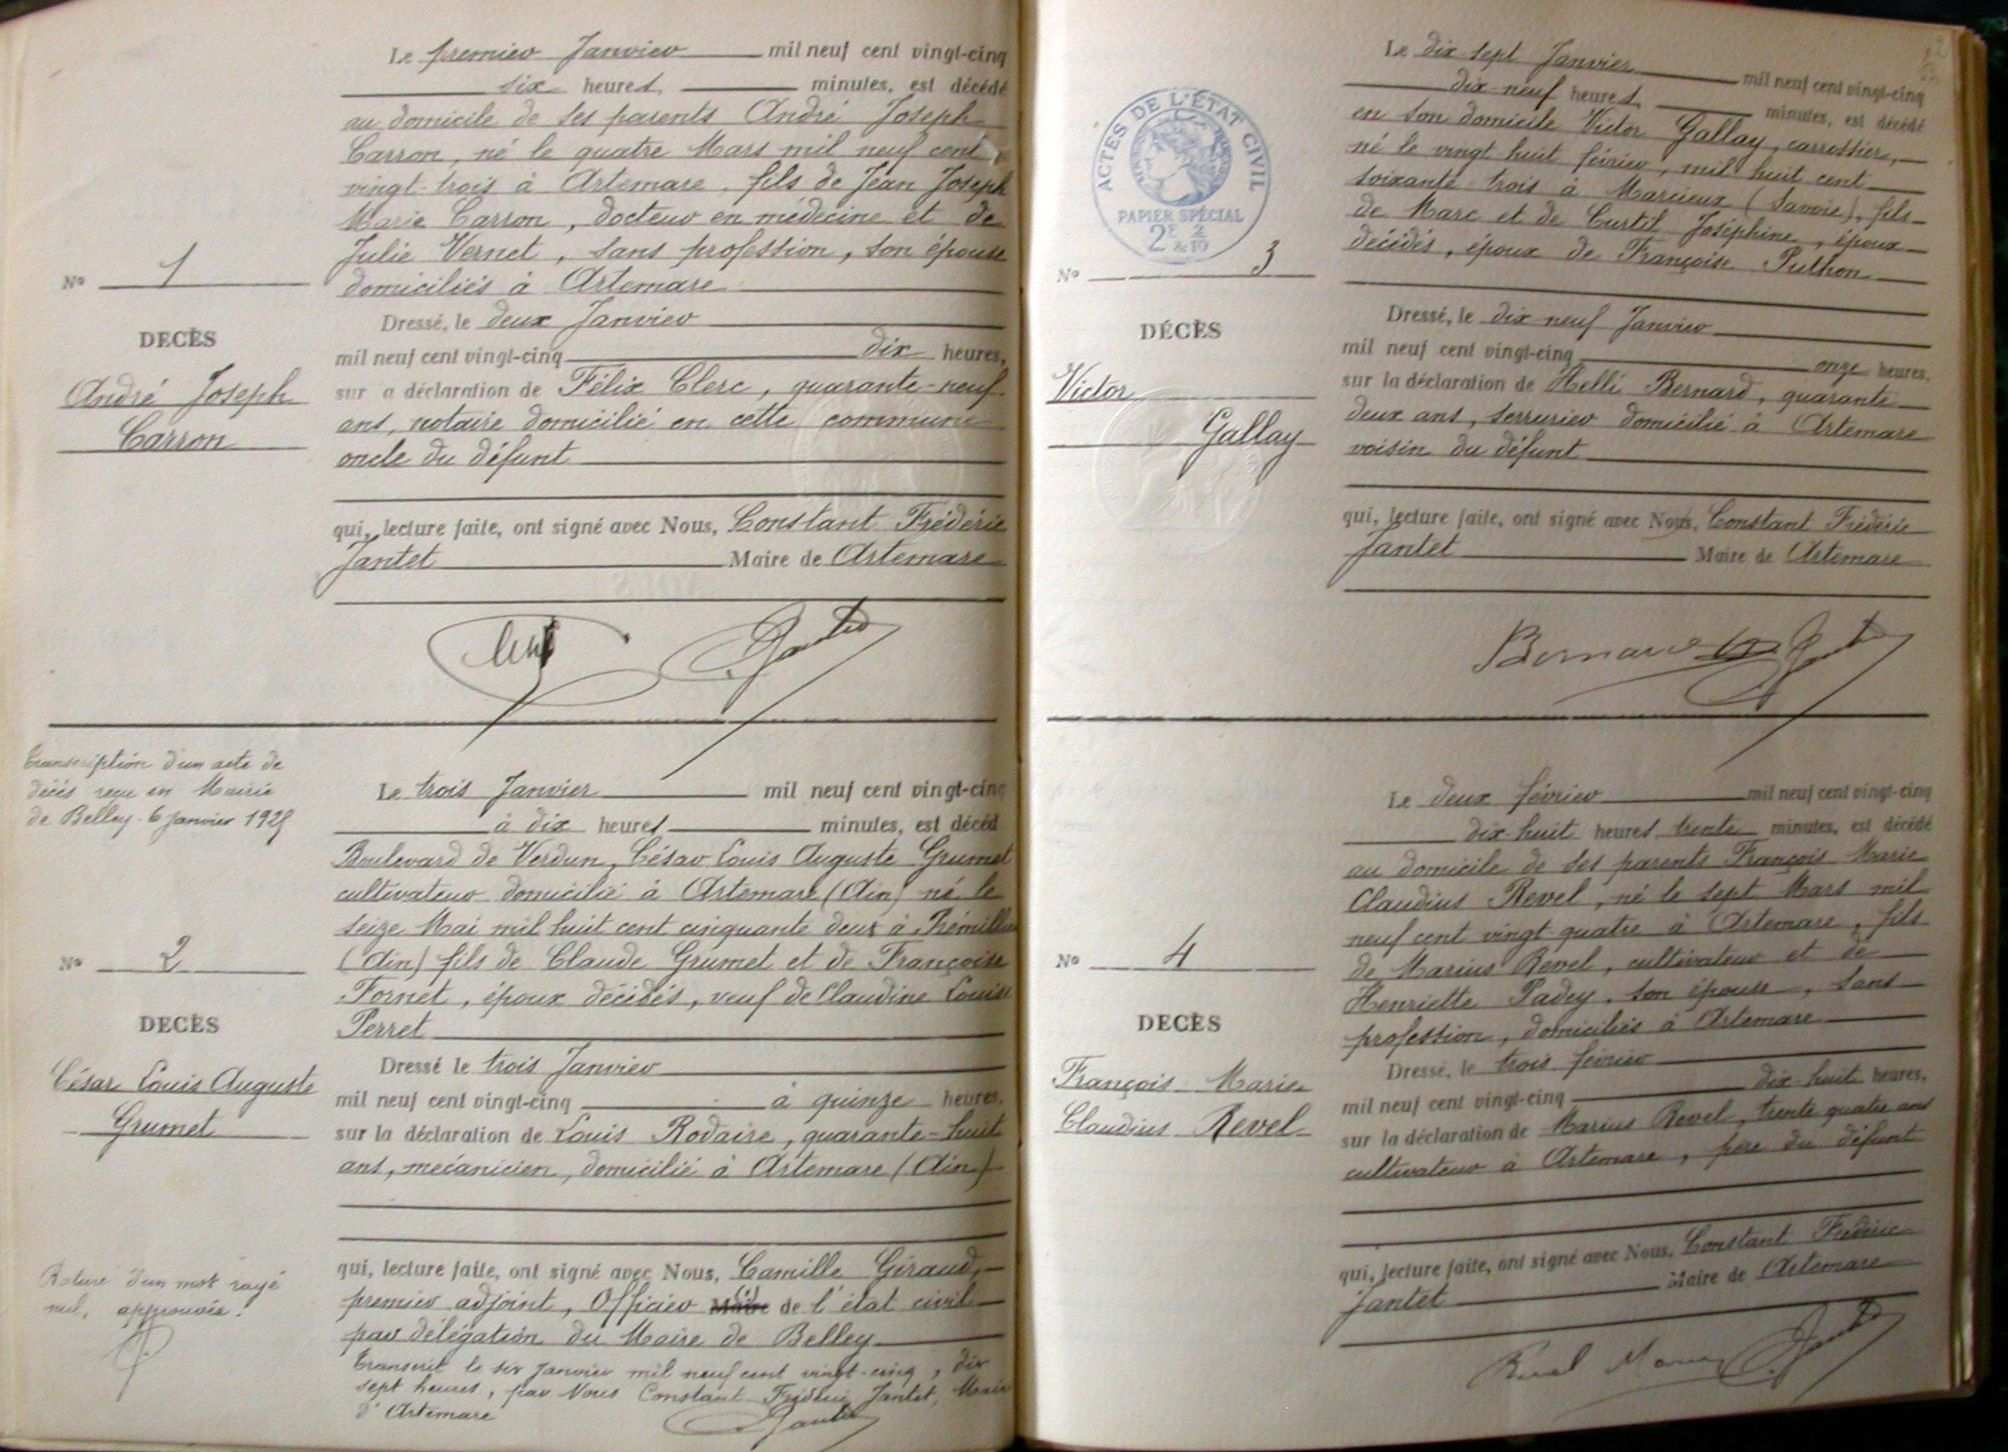 Le premier Janvier mil neuf cent vingt-cinq
six heures, minutes, est décédé
au domicile de ses parents André Joseph
Carron, né le quatre Mars mil neuf cent
vingt-trois à Artemare, fils de Jean Joseph
Marie Carron, docteur en médecine et de
Julie Vernet, sans profession, son épouse
domiciliés à Artemare
No 1
DÉCÈS
André Joseph
Carron
Dressé, le deux Janvier
mil neuf cent vingt-cinq dix heures,
sur a déclaration de Félix Clerc, quarante-neuf
ans, notaire domicilié en cette commune
oncle du défunt
qui, lecture faite, ont signé avec Nous, Constant Frédéric
Jantet Maire de Artemare
Clerc Jantet
Transcription d'un acte de
décès reçu en Mairie
de Belley - 6 Janvier 1925
Le trois Janvier mil neuf cent vingt-cinq
à dix heures minutes, est décéd
Boulevard de Verdun, César Louis Auguste Grumet
cultivateur domicilié à Artemare (Ain) né le
seize Mai mil huit cent cinquante deux à Prémillieu
(Ain) fils de Claude Grumet et de Françoise
Fornet, époux décédés, veuf de Claudine Louise
Perret
No 2
DECÈS
César Louis Auguste
Grumet
Dressé le trois Janvier
mil neuf cent vingt-cinq à quinze heures,
sur la déclaration de Louis Rodaire, quarante-huit
ans, mécanicien, domicilié à Artemare (Ain)
Rature d'un mot rayé
nul, approuvée.
qui, lecture faite, ont signé avec Nous, Camille Giraud,
premier adjoint, Officier Maire de l'état civil
par délégation du Maire de Belley
Transcrit le six Janvier mil neuf cent vingt-cinq, dix
sept heures, par Nous Constant Frédéric Jantet, Maire
d'Artemare
Jantet
2
Le dix-sept Janvier mil neuf cent vingt-cinq
dix-neuf heures, minutes, est décédé
en son domicile Victor Gallay, carrossier,
né le vingt huit février, mil huit cent
soixante-trois à Marcieux (Savoie), fils
de Marc et de Curtil Joséphine, époux
décédés, époux de Françoise Puthon
ACTES DE L'ÉTAT CIVIL
PAPIER SPÉCIAL
2F 2/10
No 3
DÉCÈS
Victor
Gallay
Dressé, le dix neuf Janvier
mil neuf cent vingt-cinq onze heures,
sur la déclaration de Helli Bernard, quarante
deux ans, serrurier domicilié à Artemare
voisin du défunt
qui, lecture faite, ont signé avec Nous, Constant Frédéric
Jantet Maire de Artemare
Bernard Jantet
Le deux février mil neuf cent vingt-cinq
dix-huit heures trente minutes, est décédé
au domicile de ses parents François Marie
Claudius Revel, né le sept Mars mil
neuf cent vingt quatre à Artemare, fils
de Marius Revel, cultivateur et de
Henriette Padey, son épouse, sans
profession, domiciliés à Artemare
No 4
DECÈS
François Marie
Claudius Revel
Dressé, le trois février
mil neuf cent vingt-cinq dix-huit heures,
sur la déclaration de Marius Revel, trente quatre ans
cultivateur à Artemare, père du défunt
qui, lecture faite, ont signé avec Nous, Constant Frédéric
Jantet Maire de Artemare
Revel Marius Jantet